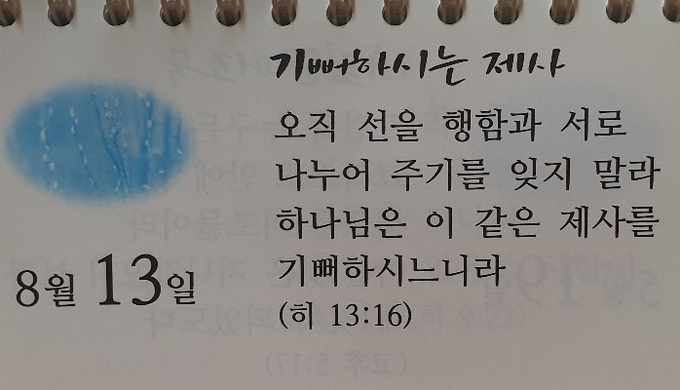 기뻐하시는 제사
오직 선을 행함과 서로
나누어 주기를 잊지 말라
하나님은 이 같은 제사를
기뻐하시느니라
(히 13:16)
8월 13일